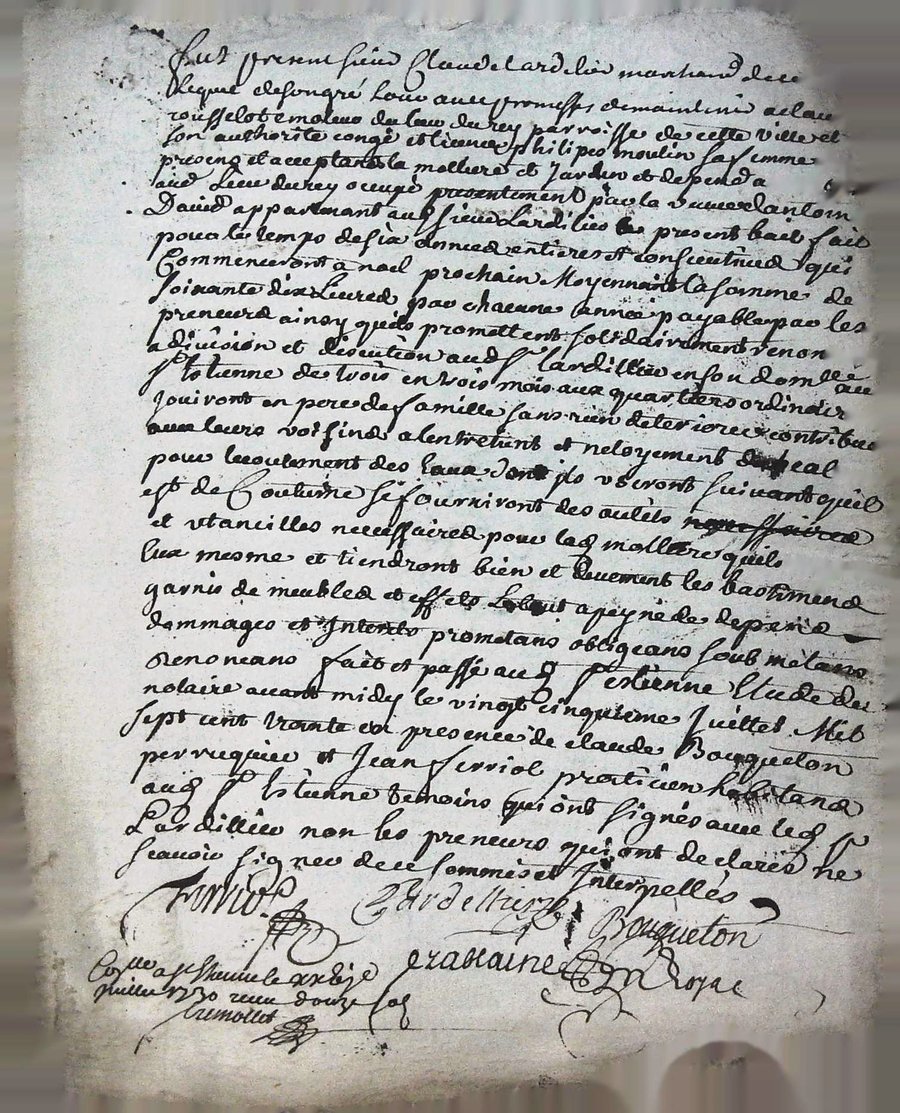 Fut present sieur Claude Lardilier marchand de ce
lequel de son gré loue avec promesses de maintenir a claude
rousselot emoleur du lieu du rey parroisse de cette ville et
son authorité congé et licence philipes moulin sa femme
presens et acceptans la molliere et Jardin et depend a
aud Lieu du rey occupé presentement par la veuve dantoine
David appartenant aud sieur Lardilier le present bail fait
pour le temps de six années entieres et consecutives qui
Commenceront a noel prochain Moyennant la somme de
soixante dix Livres par chacune année payable par les
preneurs ainsy quils promettent solidairement renon
a division et discution aud Sr Lardillier en son domille au
St Estienne de trois en trois mois aux quartiers ordinair
Jouiront en pere de famille sans rien deteriorer contribue
avec leurs voisins a lentretient et netoyement du beal
pour lecoulement des Eaux dont ils useront suivant quil
est de Coutume se fourniront des outils necessaires
et utancilles necessaires pour lad molliere quils
Eux mesme et tiendront bien et duement les bastimens
garnis de meubles et effets Le tout a peyne de depens
dommages et Interets prometans obligeans soubmetans
Renonceans fait et passé aud St estienne Etude du
notaire avant midy le vingt cinquieme Juillet Mil
sept cent trante en presence de claude Bouqueton
perruquier et Jean ferriol praticien habitans
aud St Estienne temoins qui ont signés avec led Sr
Lardillier non les preneurs qui ont declarés ne
scavoir signer de ce sommés et Interpellés
Ferriol Lardellier Bouqueton
Royac
Con.lle a St Estienne le
Juillet 1730 receu douze sols